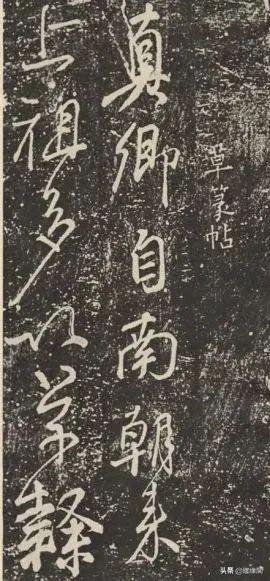 草篆帖
真卿自南朝来
上祖多以草隸
头条